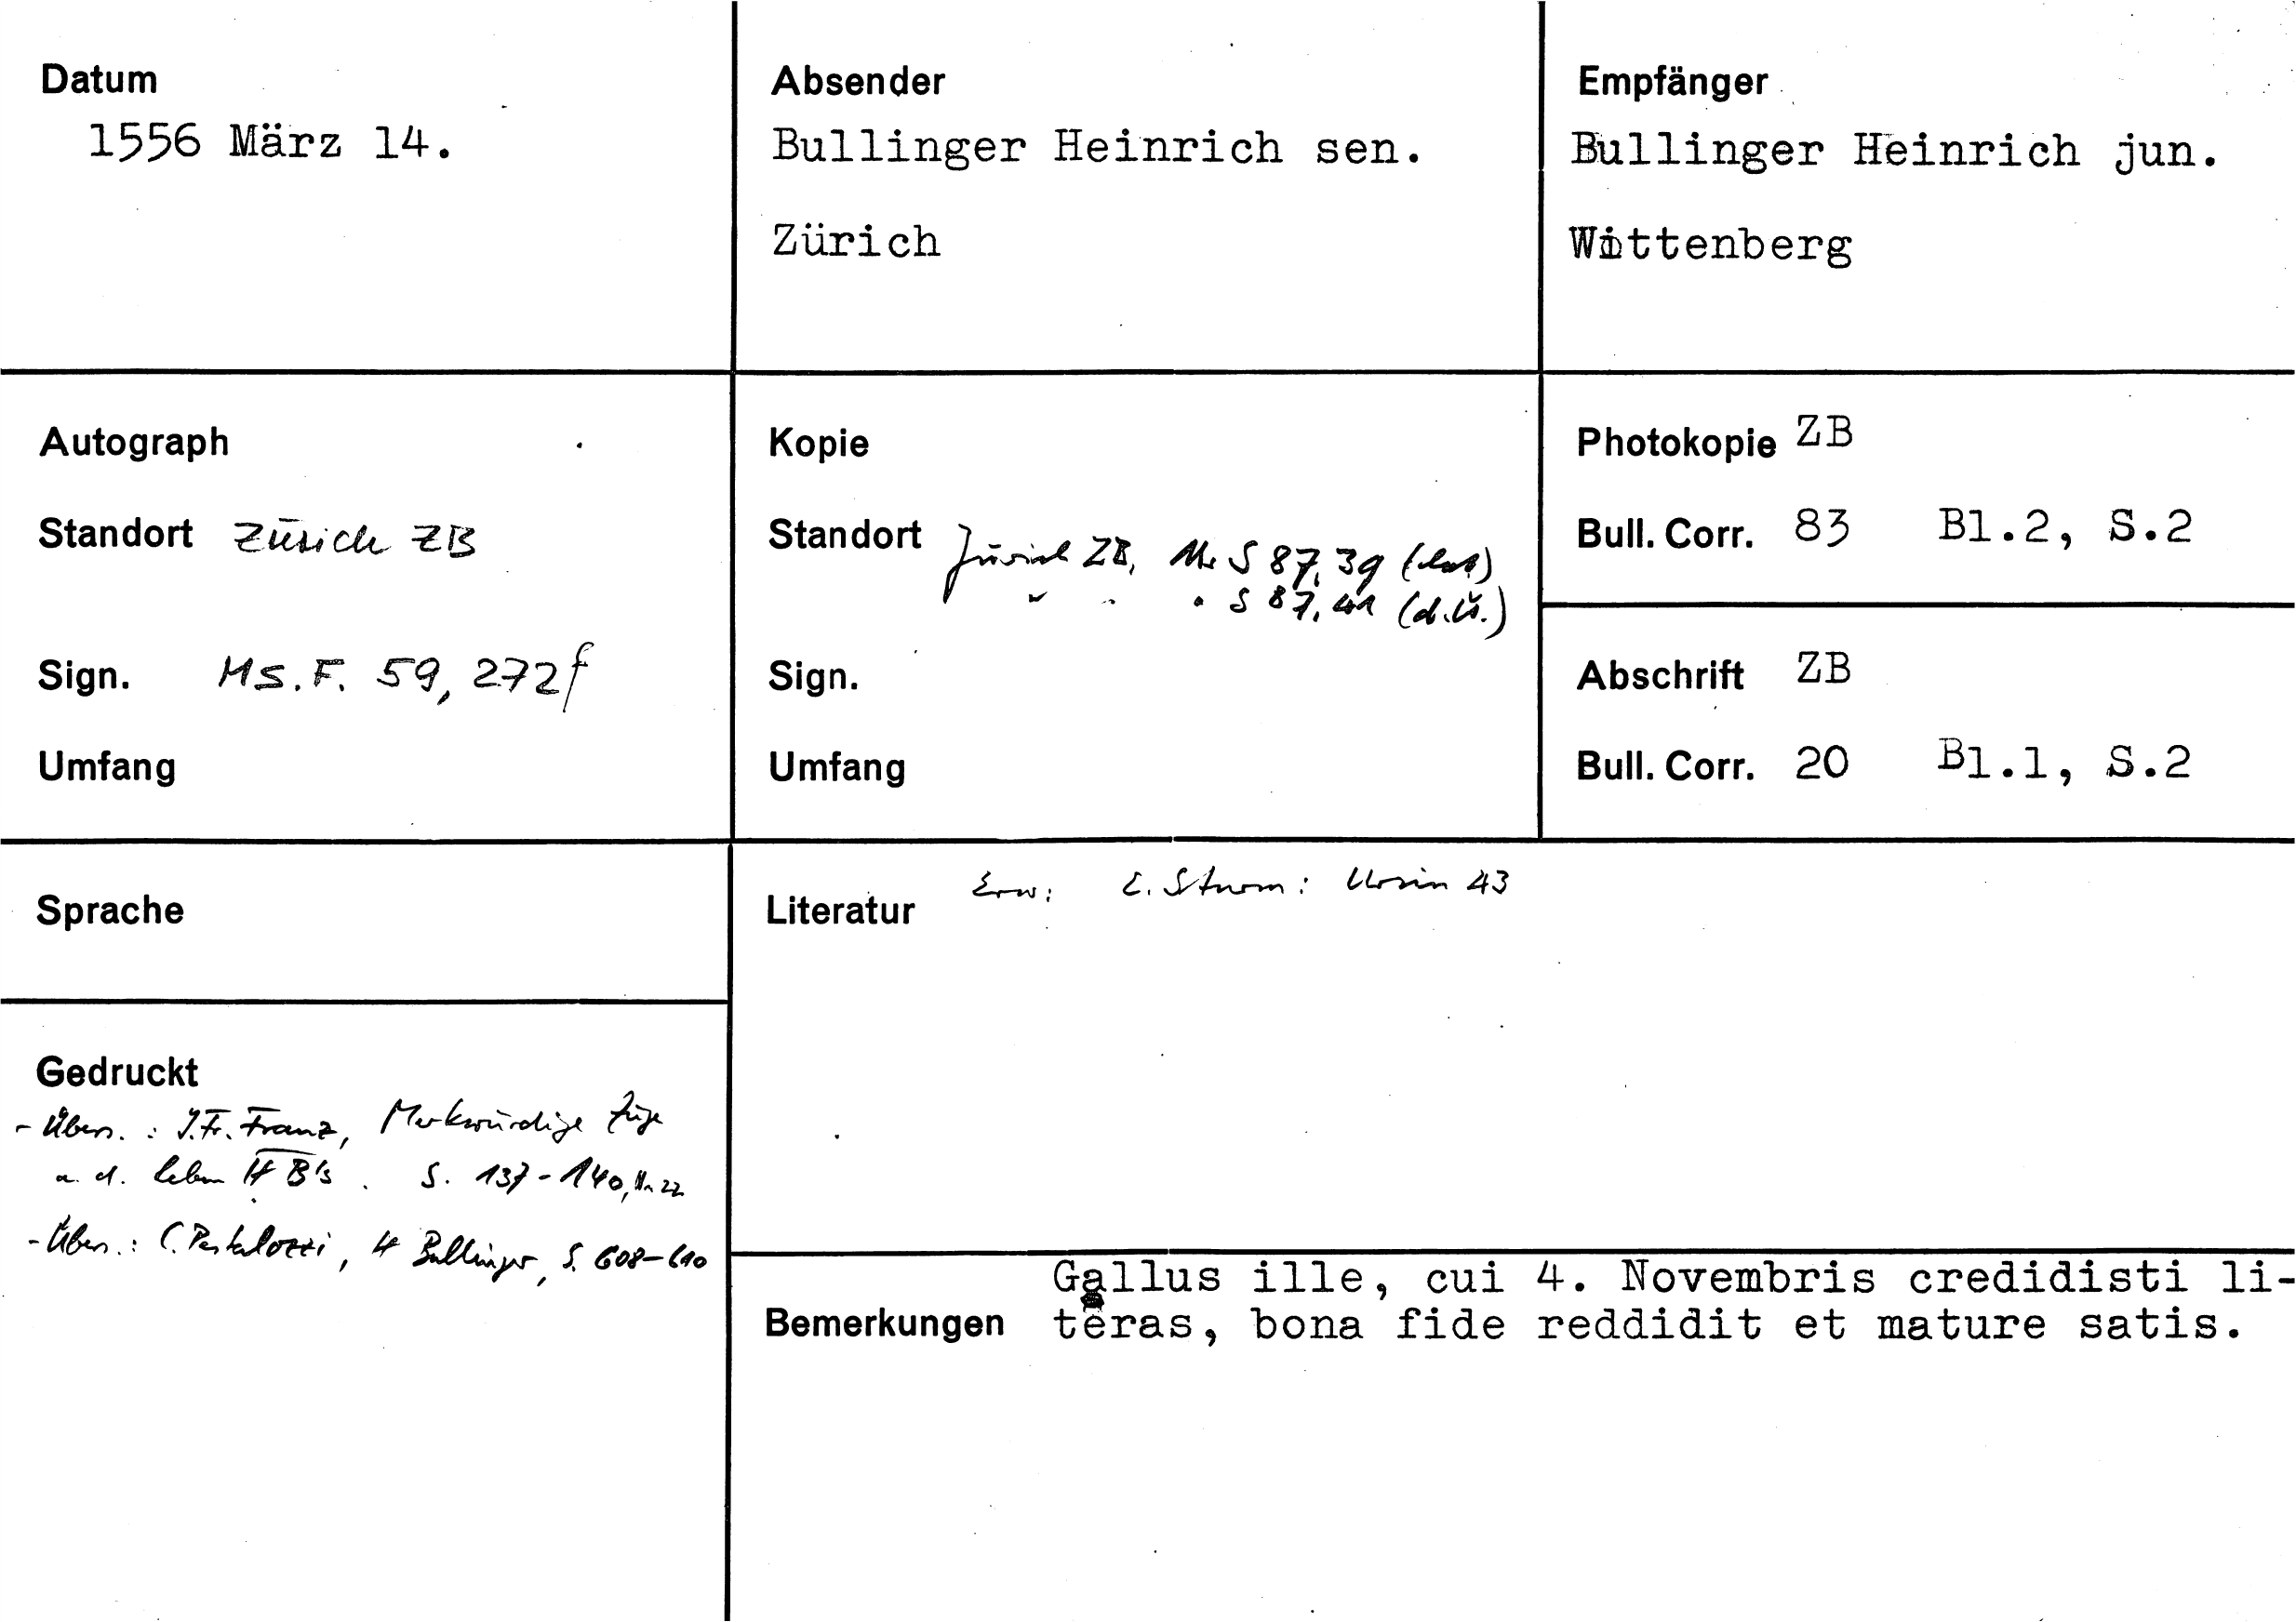 Datum
1556 März 14.
Absender
Bullinger Heinrich sen.
Zürich
Empfänger
Bullinger Heinrich jun.
Wittenberg
Autograph
Standort Zürich ZB
Sign. Ms. F. 59, 272f
Umfang
Kopie
Standort Zürich ZB, Ms S 87, 39 (lat)
" " " S 87, 41 (d. Ü.)
Sign.
Umfang
Photokopie ZB
Bull. Corr. 83 Bl.2, S.2
Abschrift ZB
Bull. Corr. 20 Bl.1, S.2
Sprache
Literatur Erw: E. Sturm: Ursin 43
Gedruckt
- Übers. : J. Fr. Franz, Merkwürdige Züge
a. d. Leben H B's. S. 137-140, Nr 22
- Übers.: C. Pestalozzi, H Bullinger, S. 608-610
Bemerkungen
Gallus ille, cui 4. Novembris credidisti li-
teras, bona fide reddidit et mature satis.